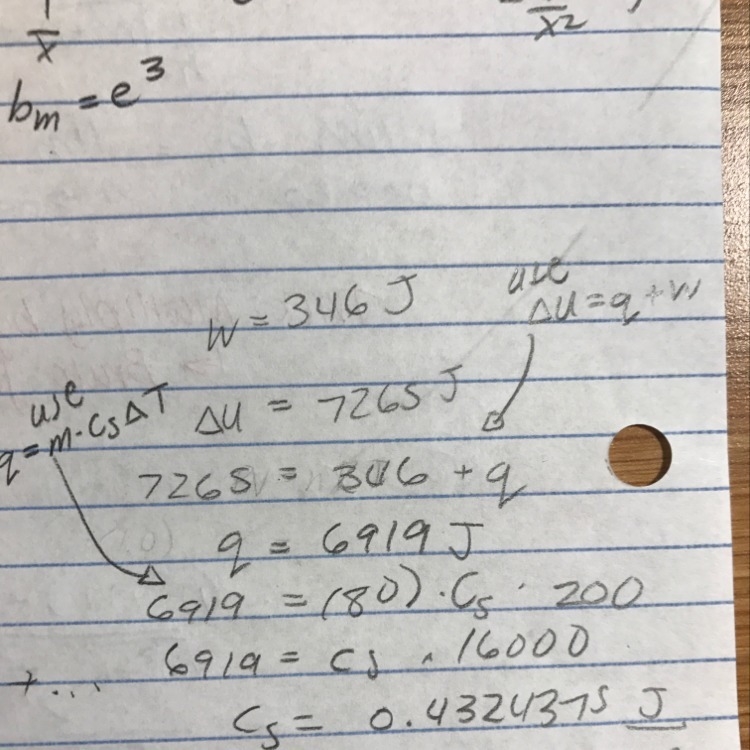 1/x
1/x²
bm = e³
W = 346 J
use
ΔU = q + w
use
q = m · Cs ΔT
ΔU = 7265 J
7265 = 346 + q
q = 6919 J
6919 = (80) · Cs · 200
6919 = Cs · 16000
+ ...
Cs = 0.4324375 J